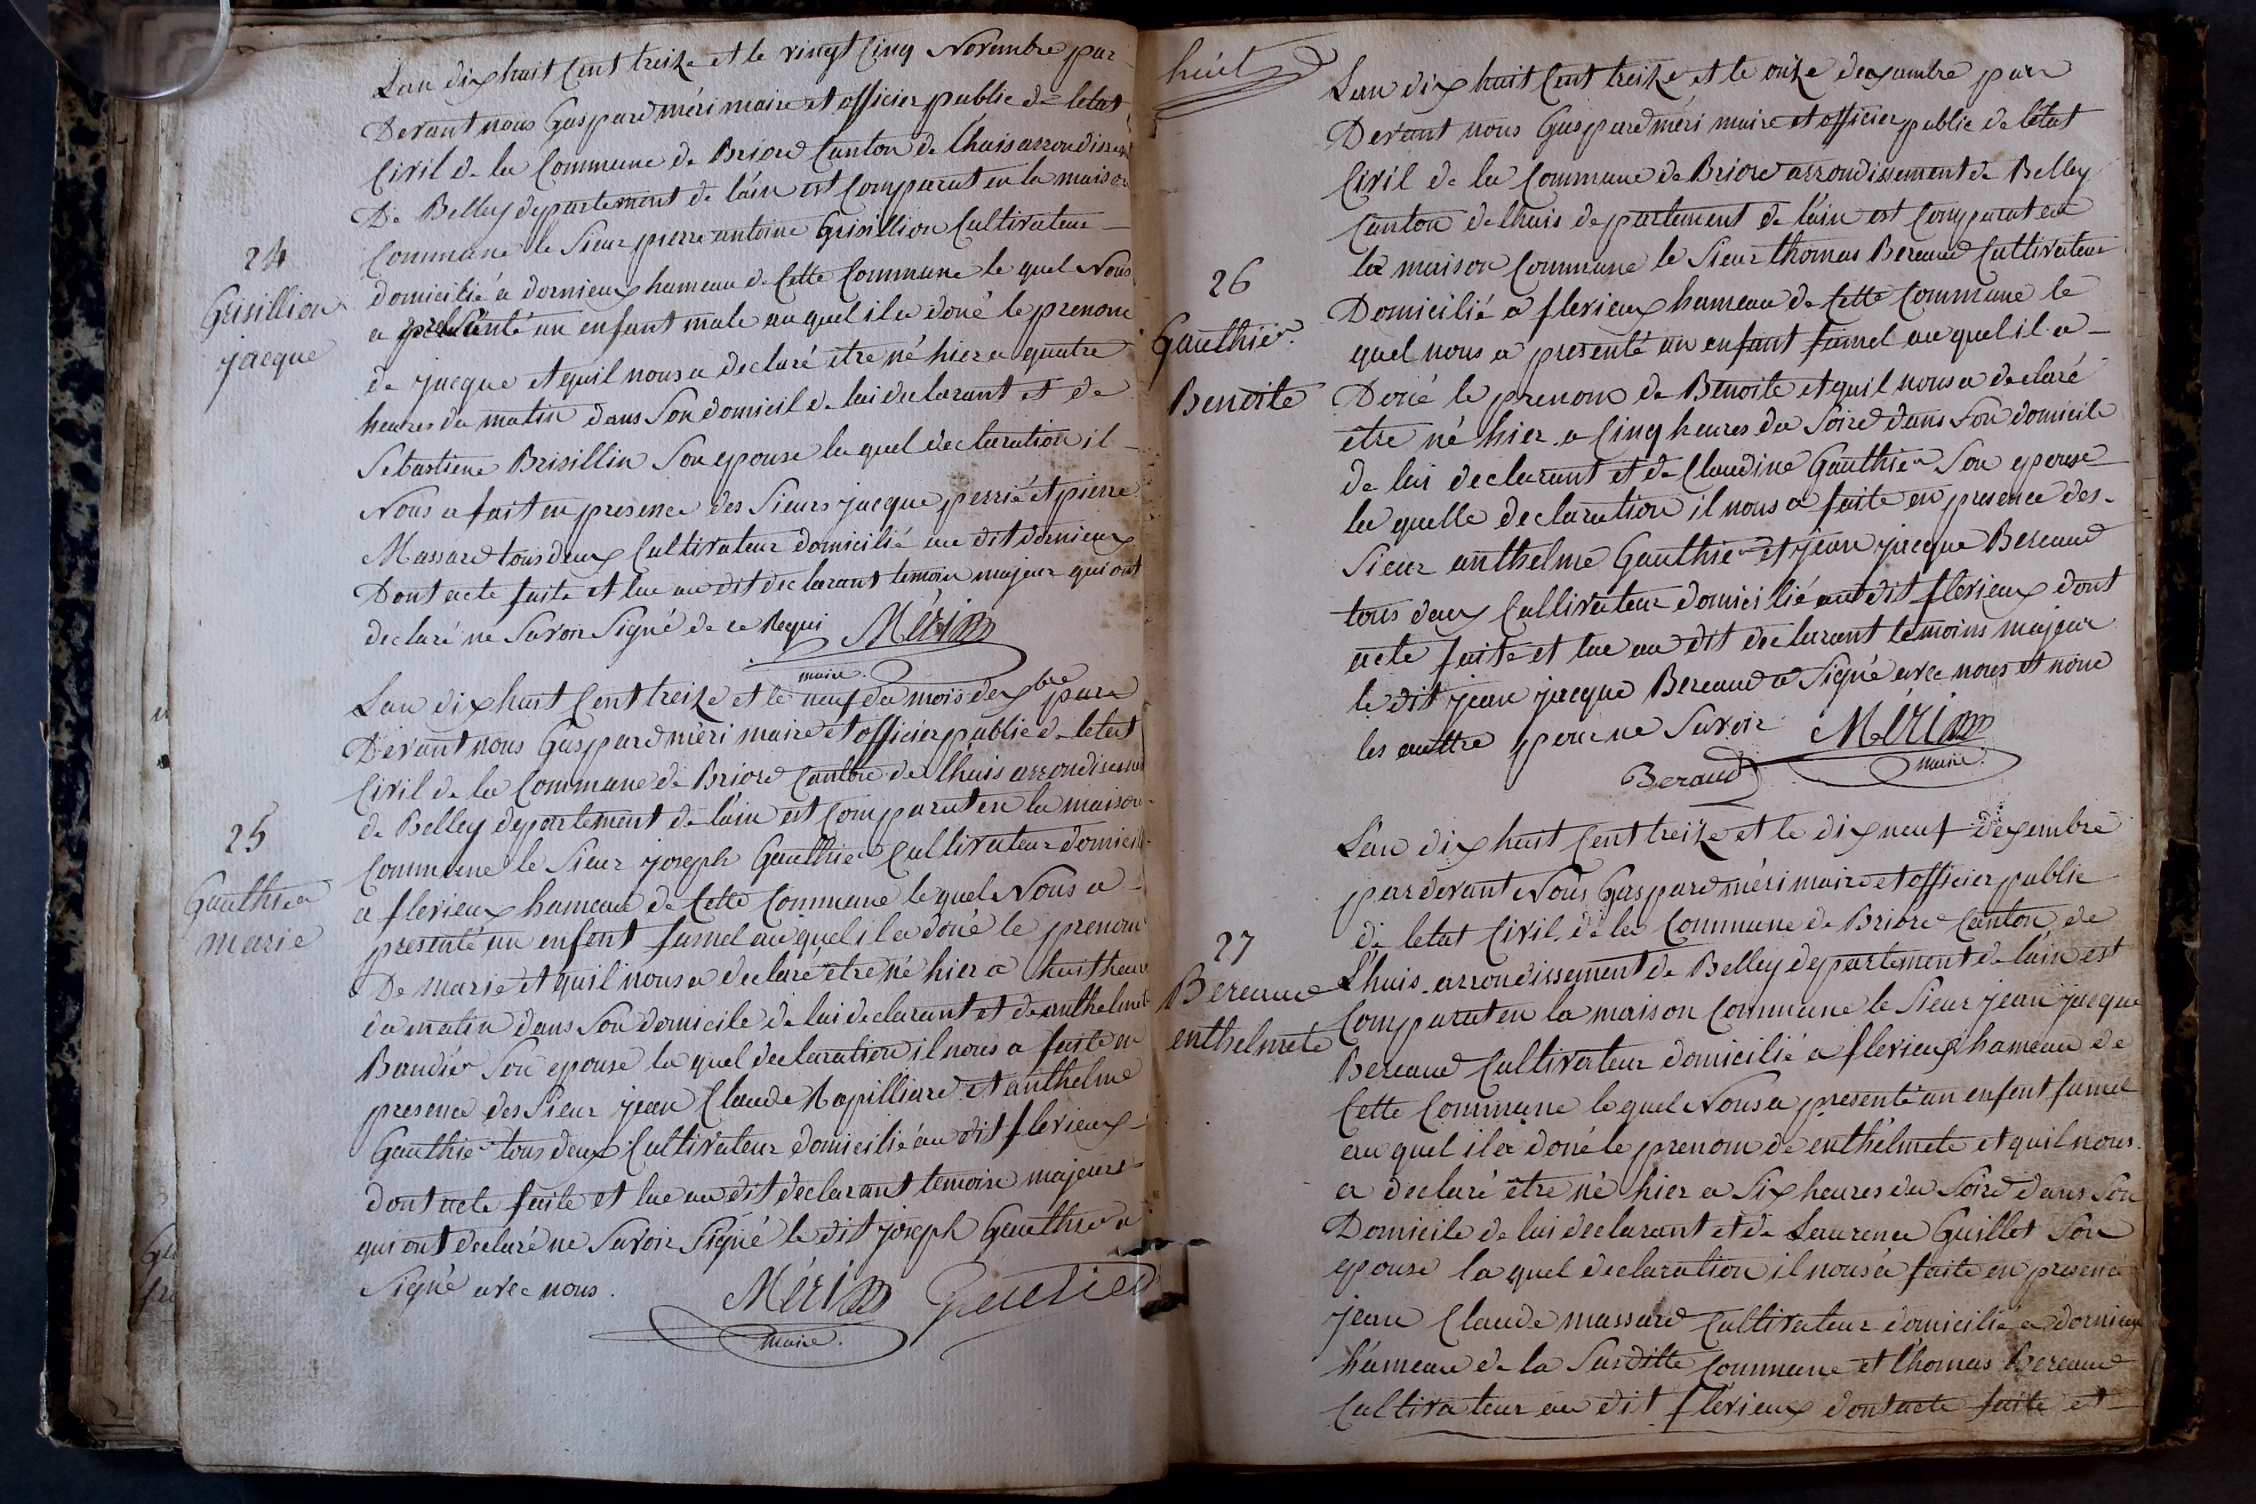 Lan dix huit Cent treize et le vingt Cinq Novembre par
Devant nous Gaspard méri maire et officier public de letat
Civil de la Commune de Briord Canton de lhuis arrondissem
De Belley departement de l'ain est Comparut en la maison
Commune le Sieur pierre antoine Grisillion Cultivateur
24
Grisillion
jacque
domicilié a dornieux hameau de Cette Commune le quel Nous
a presenté un enfant male au quel il a doné le prenom
de jacque et quil nous a declaré etre né hier a quatre
heures du matin dans Son domicil de lui declarant et de
Sebastiene Brisillin Son epouse la quel declaration il
Nous a fait en presence des Sieurs jacque perrié et pierre
Massard tous deux Cultivateur domicilié au dit dornieux
Dont acte faite et lue au dit declarant temoin majeur qui ont
declaré ne Savoir Signé de ce Requi Méri
maire
Lan dix huit Cent treize et le neuf du mois dexbre par
Devant nous Gaspard méri maire et officier public de letat
Civil de la Commune de Briord Canton de lhuis arrondissem
de Belley departement de l'ain est Comparut en la maison
25
Gauthier
marie
Commune le Sieur joseph Gauthier Cultivateur domicilié
a flerieux hameau de Cette Commune le quel Nous a
presenté un enfent famel au quel il a doné le prenom
De marie et quil nous a declaré etre né hier a huit heure
du matin dans Son domicile de lui declarant et de anthelmete
Baudié Son epouse la quel declaration il nous a faite en
presence des Sieur jean Claude Rapilliard et anthelme
Gauthié tous deux Cultivateur domicilié au dit flerieux
dont acte faite et lue au dit declarant temoin majeurs
qui ont declaré ne Savoir Signé le dit joseph Gauthier a
Signé avec nous. Méri Gautier
maire.
huit
Lan dix huit Cent treize et le onze dexambre par
Devant nous Gaspard méri maire et officier public de létat
Civil de la Commune de Briord arrondissement de Belley
Canton de lhuis departement de l'ain est Comparut en
la maison Commune le Sieur thomas Bereaud Cultivateur
26
Gauthier.
Benoite
Domicilié a flerieux hameau de Cette Commune le
quel nous a presenté un enfant famel au quel il a
Doné le prenom de Benoite et quil nous a declaré
etre né hier a Cinq heures du Soire dans Son domicile
de lui declarant et de Claudine Gauthier Son epouse
la quelle declaration il nous a faite en presence des
Sieur anthelme Gauthier et jean jacque Bereaud
tous deux Cultivateur domicilié audit flerieux dont
acte faite et lue au dit declarant temoins majeur
le dit jean jacque Bereaud a Signé avec nous et none
les auttre pour ne Savoir Méri
Beraud maire.
Lan dix huit Cent treize et le dix neuf dexembre
par devant Nous Gaspard méri maire et officier public
de letat Civil de la Commune de Briord Canton de
27
Bereaud
enthelmete
L'huis arrondissement de Belley departement de l'ain est
Comparut en la maison Commune le Sieur jean jacque
Bereaud Cultivateur domicilié a flerieux hameau de
Cette Commune le quel Nous a presenté un enfent famel
au quel il a doné le prenom de enthélmete et quil nous
a declaré etre né hier a Six heures du Soire dans Son
Domicile de lui declarant et de Laurence Guillot Son
epouse la quel declaration il nous a faite en presence
jean Claude massard Cultivateur domicilié a dornieux
hameau de la Surditte Commune et thomas Bereaud
Cultivateur au dit flérieux dont acte faite et